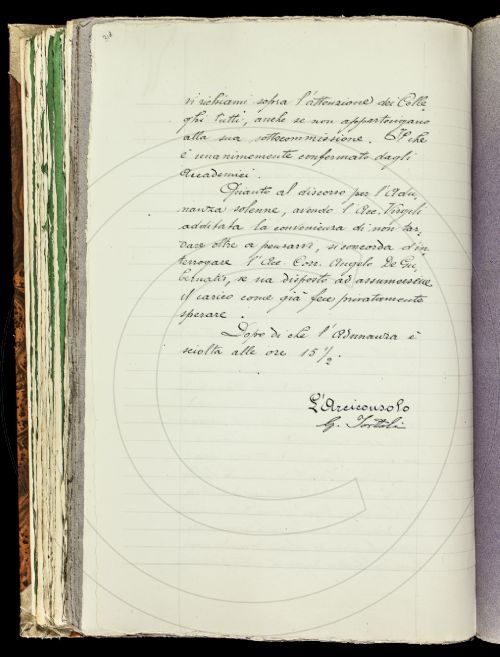 si richiami sopra l'attenzione dei Colle-
ghi tutti, anche se non appartengano
alla sua sottocommissione. Il che
è unanimemente confermato dagli
Accademici.
Quanto al discorso per l'Adu-
nanza solenne, avendo l'Acc. Virgili
additata la convenienza di non tar-
dare oltre a pensarvi, si concorda d'in
terrogare l'Acc. Corr. Angelo De Gu-
bernatis, se sia disposto ad assumersene
il carico come già fece privatamente
sperare.
Dopo di che l'Adunanza è
sciolta alle ore 15 1/2.
L'Arciconsolo
G. Tortoli